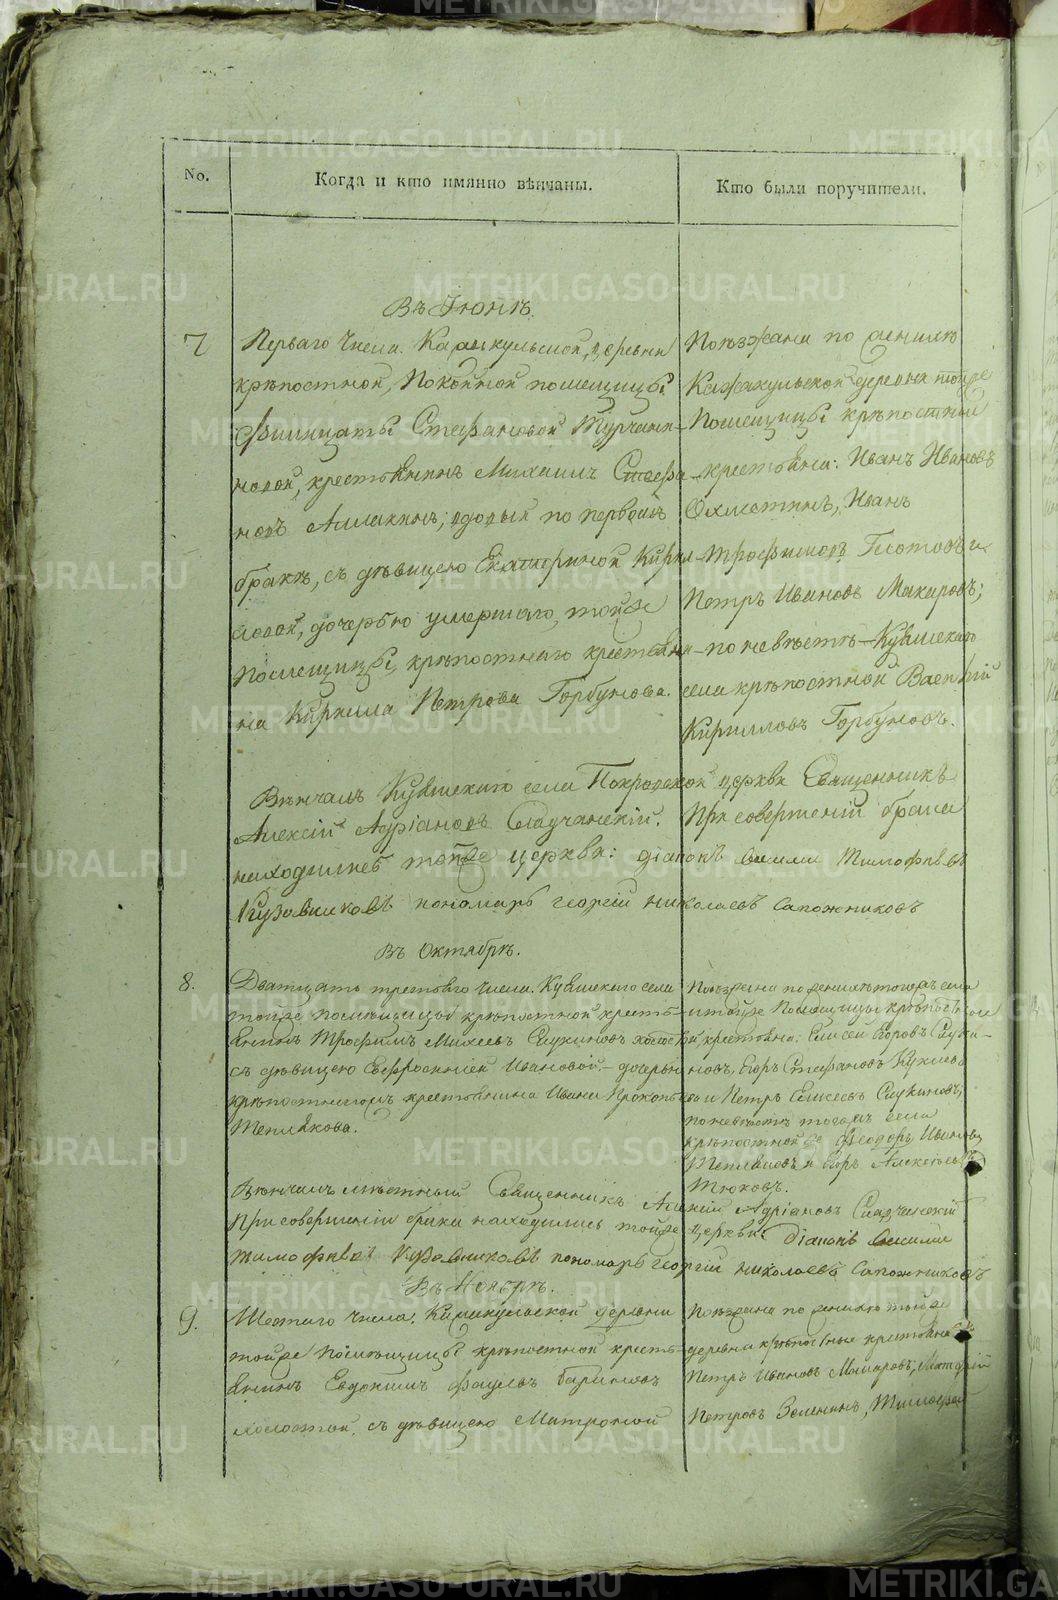 No.
Когда и кто имянно вѣнчаны.
Кто были поручители.
Въ Іюнѣ.
7
Перваго Числа. Каракульской, деревни
крѣпостной, Покойной помещицы
Филицаты Стефановой Турчани-
новой, крестьянинъ Михаилъ Стефа-
новъ вдовый по первомъ
бракѣ, съ дѣвицею Екатериной Кирил-
ловой, дочерью умершаго, тойже
помещицы, крѣпостнаго крестьяни-
на Кирила Петрова Горбунова.
Поѣзжана по женихѣ
деревни тойже
Помещицы крѣпостныи
крестьяна: Иванъ Ивановъ
Охлостинъ, Иванъ
Трофимовъ Глотовъ и
Петръ Ивановъ Макаровъ;
по невѣстѣ Куяшскаго
села крѣпостной Василій
Кирилловъ Горбуновъ.
Вѣнчалъ Куяшскаго села Покровской церкви Священникъ
Алексій Адріановъ Сладчанскій. При совершеніи брака
находились тойже церкви: діаконъ Тимофѣевъ
Кузовниковъ пономарь георгій николаевъ сапожниковъ
Въ Октябрѣ.
8.
Дватцать третьяго Числа. Куяшскаго села
тойже помѣщицы крѣпостной кресть-
янинъ Трофимъ Михеевъ холостый
съ дѣвицею Евфросиніей Ивановой дочерью
крѣпостнагожъ крестьянина Ивана Прокопьева
Теплякова.
Поѣзжана по женихѣ тогожъ села
и тойже Помещицы крѣпостныи
крестьяна: Елисей Егоровъ
Егоръ Стефановъ
и Петръ Елисеевъ
по невѣстѣ тогожъ села
крѣпостной Феодоръ Ивановъ
Тепляковъ и Егоръ Алексѣевъ
Тюковъ.
Вѣнчалъ мѣстный Священникъ Алексій Адріановъ Сладчанскій
При совершеніи брака находились тойже церкви: діаконъ
тимофѣевъ Кузовниковъ пономарь георгій николаевъ сапожниковъ
Въ Ноябрѣ.
9.
Шестаго Числа. деревни
тойже помѣщицы крѣпостной кресть-
янинъ Евдокимъ Бариновъ
холостой, съ дѣвицею Матроной
Поѣзжана по женихѣ тойже
деревни крѣпостные крестьяна
Петръ Ивановъ Макаровъ,
Петровъ Зеленинъ, Тимофей
METRIKI.GASO-URAL.RU